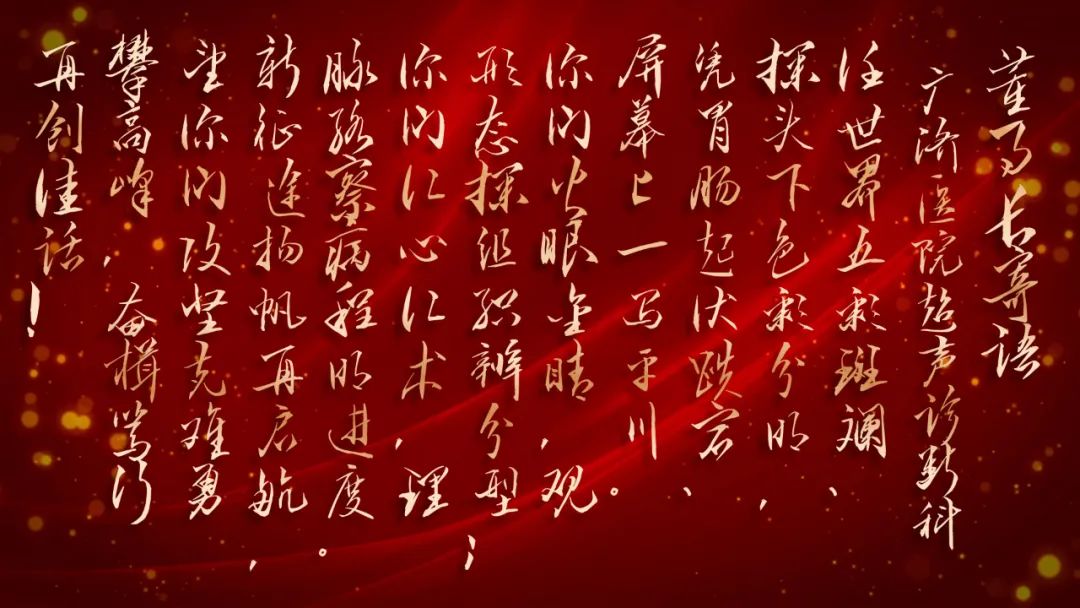 董事长寄语
广济医院超声诊断科
任世界五彩斑斓、
探头下色彩分明,
凭胃肠起伏跌宕、
屏幕上一马平川。
你们火眼金睛,观
形态探组织辨分型;
你们仁心仁术,理
脉络察病程明进度。
新征途扬帆再启航,
望你们攻坚克难勇
攀高峰,奋楫笃行
再创佳话!